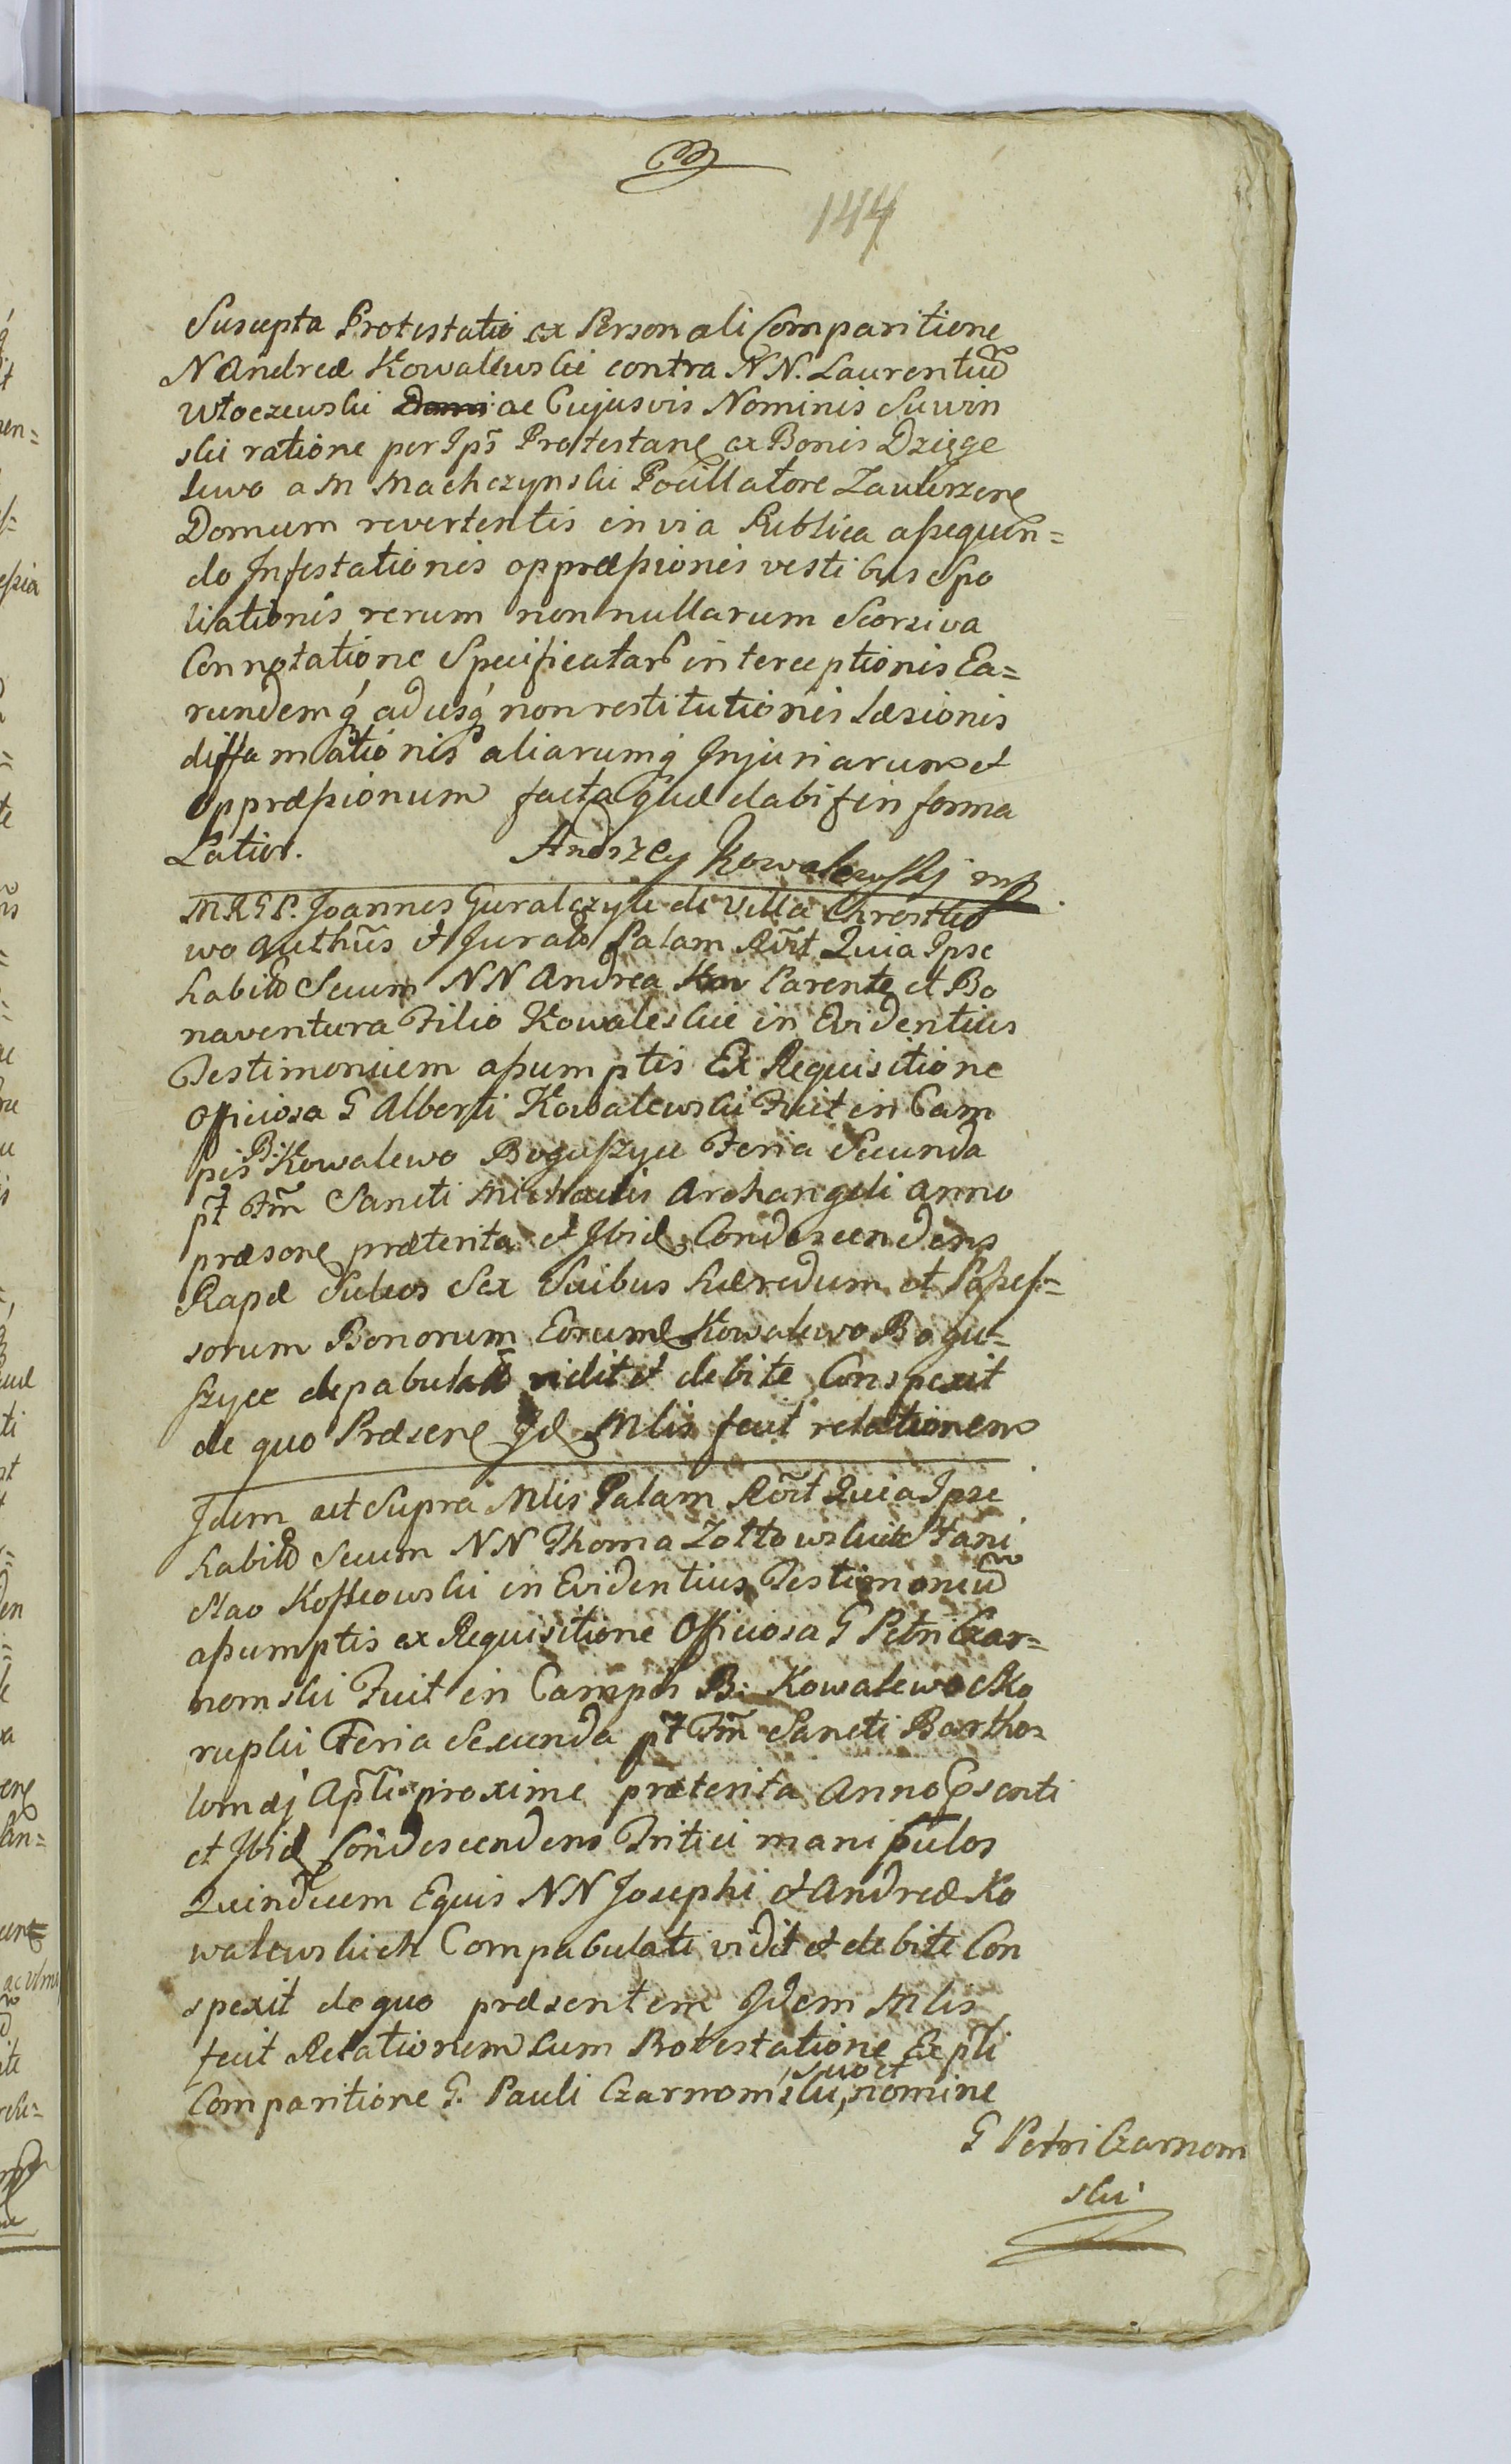 144
Suscepta Protestatio ex Personali Comparitione
N Andreæ Kowalewski contra NN. Laurentiũ
Włoczewski ac Cujusvis Nominis Suwin
ski ratione per Ips̃ Protestanẽ ex Bonis Dzięge
lewo a M Machczynski Pocillatore Zaw
Domum revertentis in via Publica assequen=
do Infestationis oppræssionis vestibus Spo
liationis rerum nonnullarum Seorsiva
Connotatione Specificatar̃ interceptionis Ea=
rundemq́ adusq́ non restitutionis læsionis
diffamationis aliarumq́ Injuriarum et
Oppræssionum facta quæ dabit in forma
Latior.
Andrzey Kowalewskj mp
M R G P. Joannes Guralczyk de Villa Chrostko
wo Authũs et Jurat Palam Rõit Quia Ipse
habit Secum NN Andrea Parente et Bo
naventura Filio Kowaleskie in Evidentius
Testimonium assumptis Ex Requisitione
Officiosa G Alberti Kowalewski Fuit in Cam
pis B: Kowalewo Boguszyce Feria Secunda
pt̃ Fm̃ Sancti Michaelis Archangeli Anno
præsenẽ præterita et Ibid Condescendens
Rapæ Sulcos Sex Suibus hæredum et Possess=
sorum Bonorum Eorumd Kowalewo Bogu=
szyce depabulat vidit et debite Conspexit
de quo Præsenẽ Id Mlis fecit relationem
Idem ut Supra Mlis Palam Rõit Quia Ipse
habit Secum NN Thoma Zołtowski et Stani
slao Kossowski in Evidentius Testimoniũ
assumptis ex Requisitione Officiosa G Petri Czar=
nomski Fuit in Campis B: Kowalewo Sko
rupki Feria Secunda pt̃ Fm̃ Sancti Bartho=
lomæj Ap̃li proxime præterita Anno Psenti
et Ibid Condescendens Tritici manipulos
Quindecem Equis NN Josephi et Andreæ Ko
walewskich Compabulati vidit et debite Con
spexit de quo præsentem Idem Mlis
fecit Relationem Cum Protestatione Ex p̃li
suo et
Comparitione G. Pauli Czarnomski, nomine
G Petri Czarnom
ski